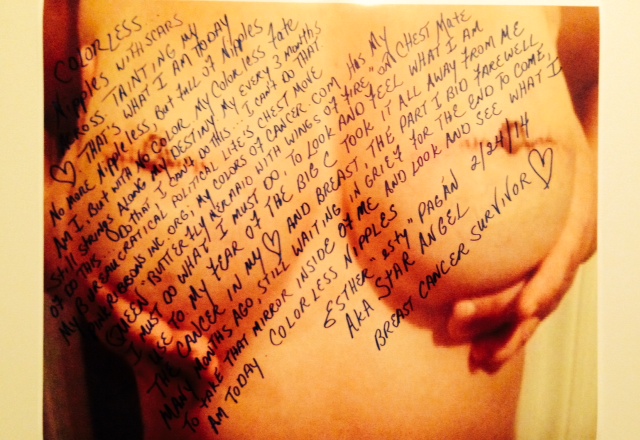 COLORLESS...
NIPPLES WITH SCARS
ACROSS. TAINTING MY
♡ THAT'S WHAT I AM TODAY
NO MORE NIPPLES... BUT FULL OF NIPPLES
AM I. BUT WITH NO COLOR. MY COLORLESS FATE
STILL STRINGS ALONG MY DESTINY. MY EVERY 3 MONTHS
OF DO THIS... DO THAT. I CAN'T DO THIS... I CAN'T DO THAT.
MY BUREAUCRATICAL POLITICAL LIFE'S CHEST MOVE
RIBBONS INC ORG, MY COLORS OF CANCER.COM, HAS MY
QUEEN "BUTTERFLY MERMAID WITH WINGS OF FIRE" ON CHEST MATE
I MUST DO WHAT I MUST DO, TO LOOK AND FEEL WHAT I AM
USE TO MY FEAR OF THE BIG C TOOK IT ALL AWAY FROM ME
THE CANCER IN MY ♡ AND BREAST, THE PART I BID FAREWELL
MANY MONTHS AGO, STILL WAITING IN GRIEF FOR THE END TO COME,
TO TAKE THAT MIRROR INSIDE OF ME AND LOOK AND SEE WHAT I
AM TODAY. COLORLESS NIPPLES
ESTHER "ESTY" PAGÁN 2/24/14
AKA STAR ANGEL
BREAST CANCER SURVIVOR ♡